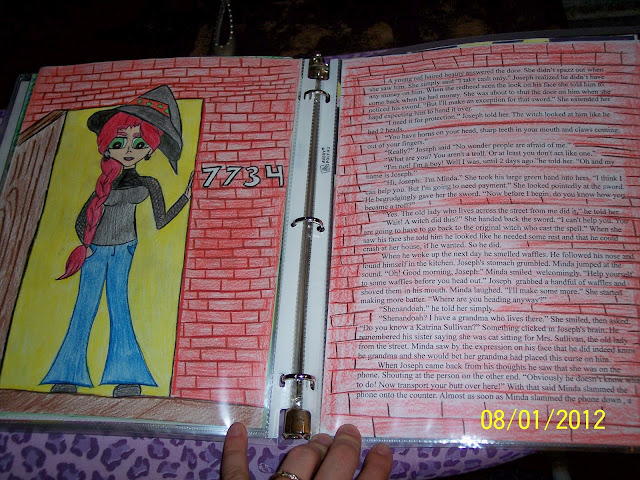 7734
A young red haired beauty answered the door. She didn't spazz out when
she saw him. She simply said "I take cash only." Joseph realized he didn't have
any money on him. When the redhead seen the look on his face she told him to
come back when he had money. She was about to shut the door on him when she
noticed his sword. "But I'll make an exception for that sword." She extended her
hand expecting him to hand it over.
"I need it for protection." Joseph told her. The witch looked at him like he
had 2 heads.
"You have horns on your head, sharp teeth in your mouth and claws coming
out of your fingers."
"Really?" Joseph said "No wonder people are afraid of me."
"What are you? You aren't a troll. Or at least you don't act like one."
"I'm not! I'm a boy! Well I was, until 2 days ago." he told her. "Oh and my
name is Joseph."
"Hi, Joseph. I'm Minda." She took his large green hand into hers. "I think I
can help you. But I'm going to need payment." She looked pointedly at the sword.
He begrudgingly gave her the sword. "Now before I begin, do you know how you
became a troll?"
"Yes. The old lady who lives across the street from me did it," he told her.
"Wait! A witch did this?" She handed back the sword. "I can't help you. You
are going to have to go back to the original witch who cast the spell." When she
saw his face she told him he looked like he needed some rest and that he could
crash at her house, if he wanted. So he did.
When he woke up the next day he smelled waffles. He followed his nose and
found himself in the kitchen. Joseph's stomach grumbled. Minda jumped at the
sound. "Oh! Good morning, Joseph." Minda smiled welcomingly. "Help yourself
to some waffles before you head out." Joseph grabbed a handful of waffles and
shoved them in his mouth. Minda laughed. "I'll make some more." She started
making more batter. "Where are you heading anyway?"
"Shenandoah." he told her simply.
"Shenandoah? I have a grandma who lives there." She smiled, then asked,
"Do you know a Katrina Sullivan?" Something clicked in Joseph's brain. He
remembered his sister saying she was cat sitting for Mrs. Sullivan, the old lady
from the street. Minda saw by the expression on his face that he did indeed know
her grandma and she would bet her grandma had placed this curse on him.
When Joseph came back from his thoughts he saw that she was on the
phone. Shouting at the person on the other end. "Obviously he doesn't know what
to do! Now transport your butt over here!" With that said Minda slammed the
phone onto the counter. Almost as soon as Minda slammed the phone down, a
08/01/2012